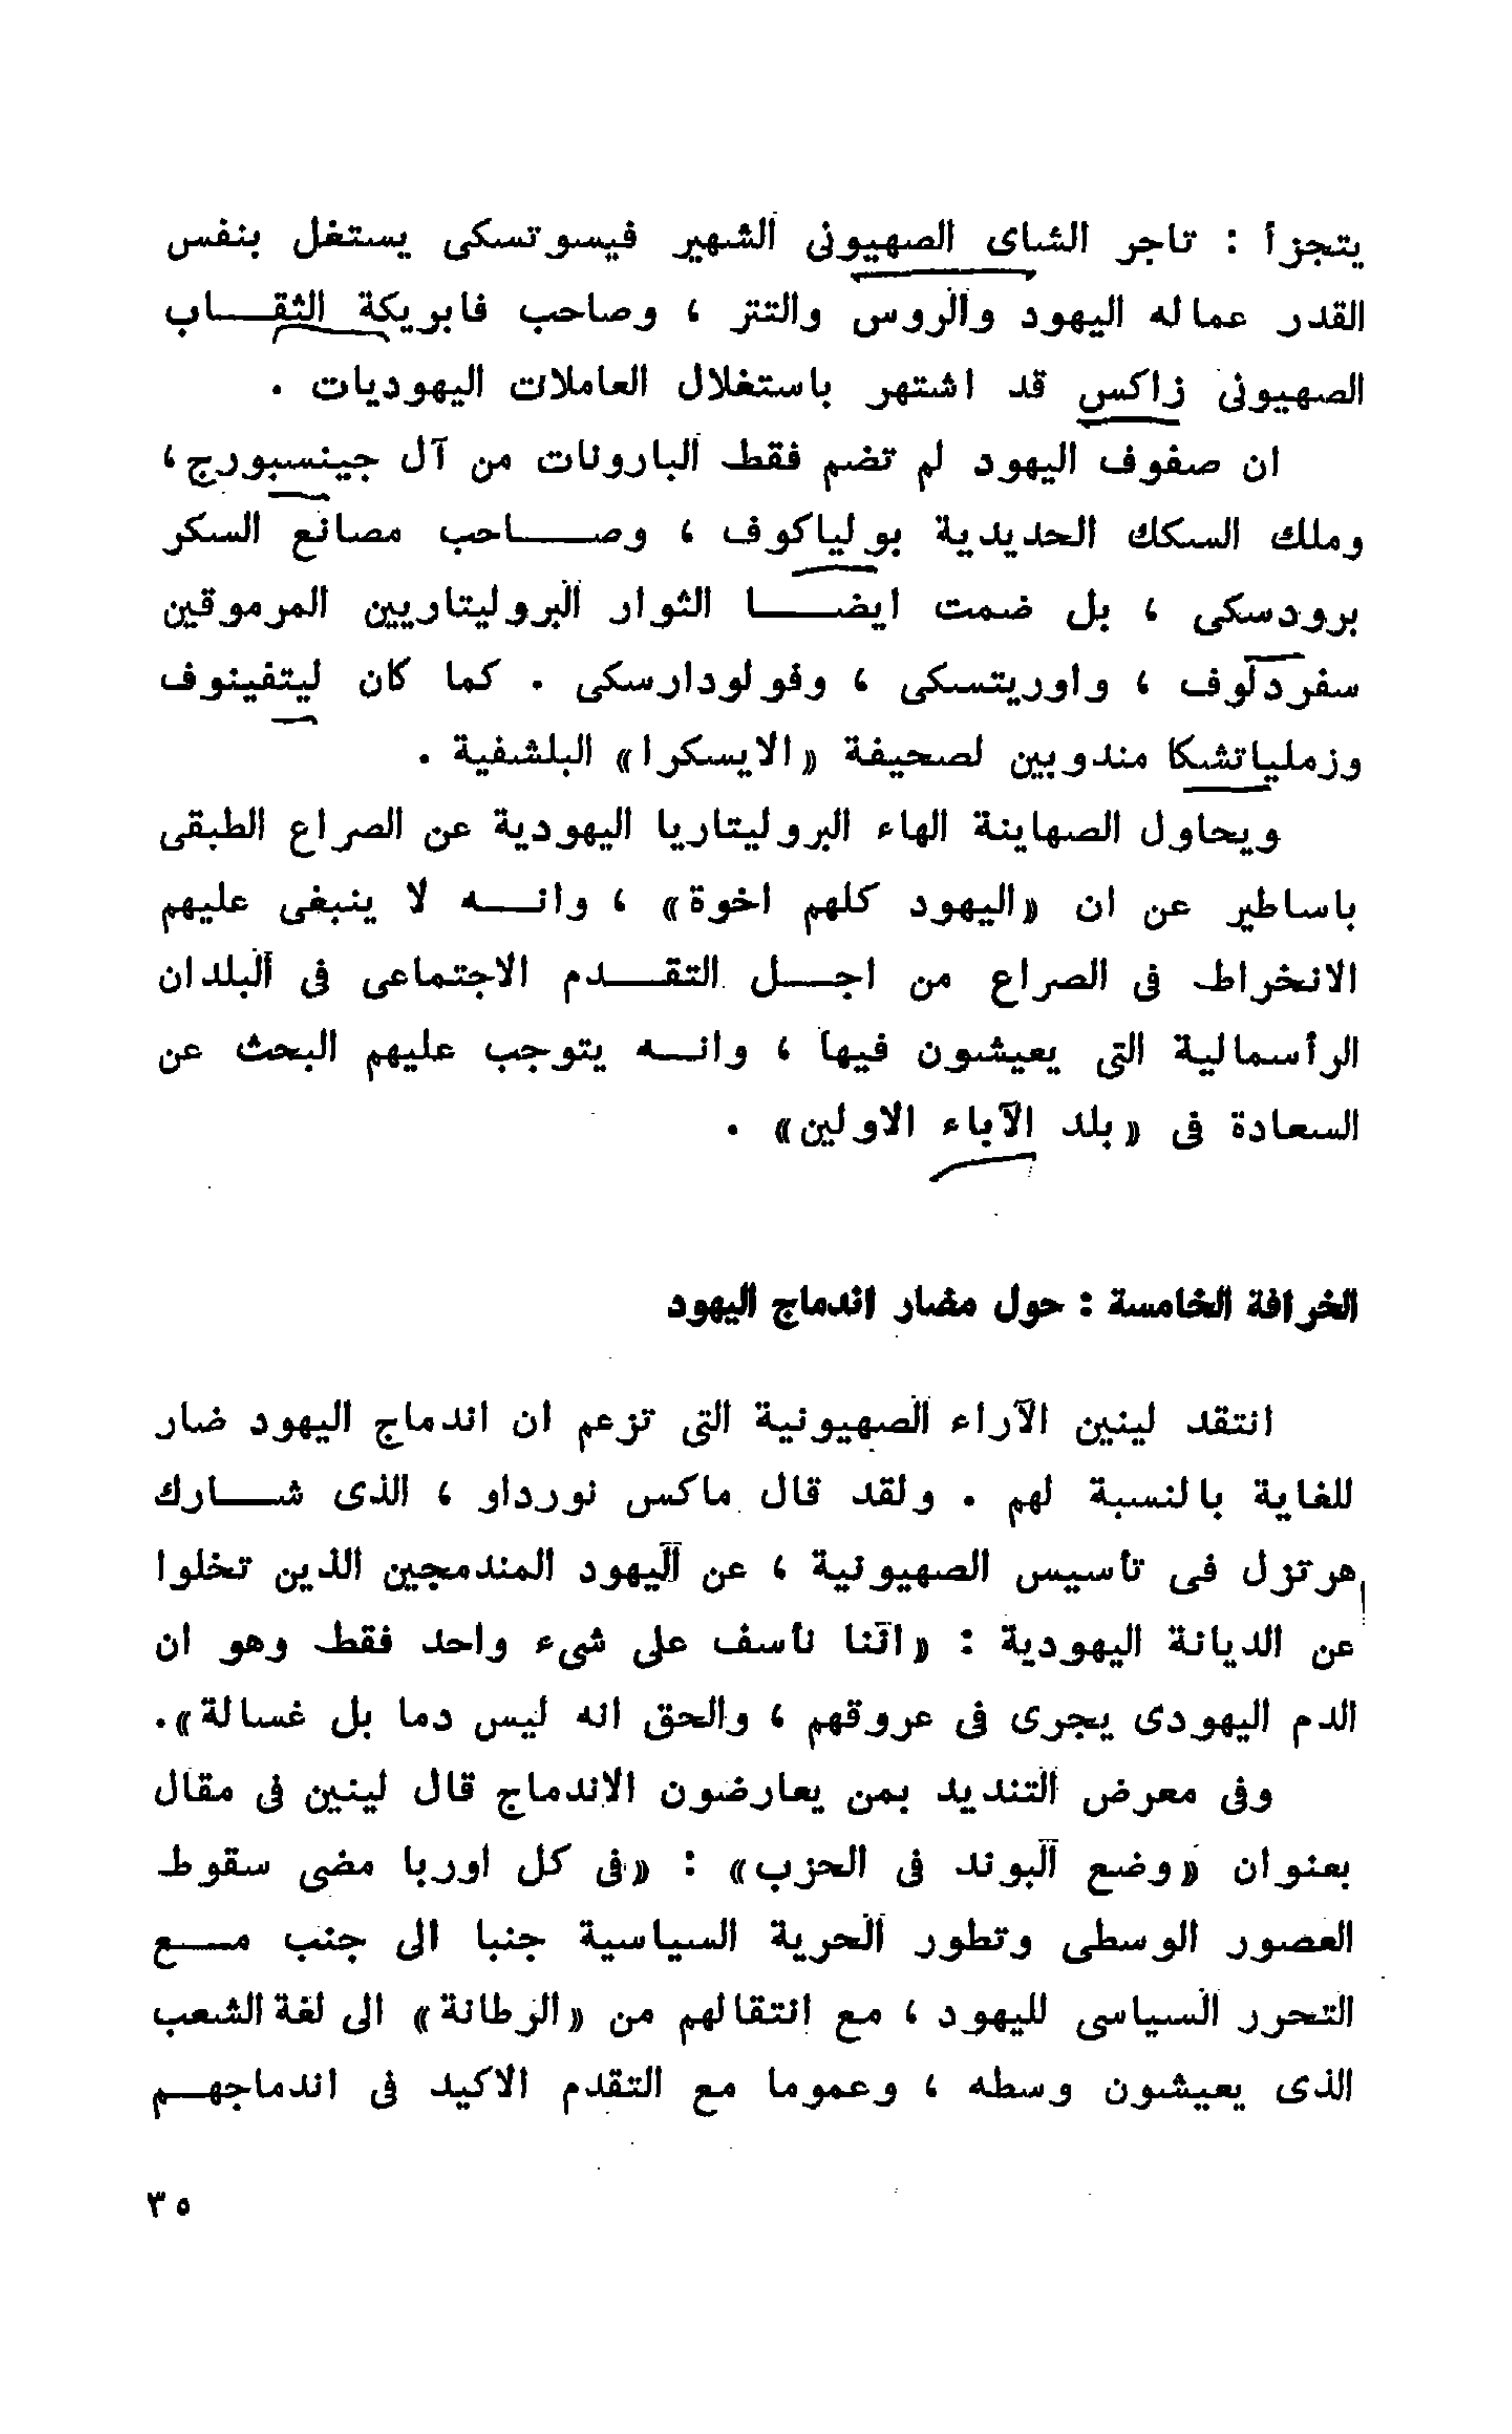 يتجزأ : تاجر الشاى الصهيونى الشهير فيسوتسكى يستغل بنفس
القدر عماله اليهود والروس والتتر ، وصاحب فابريكة الثقـــاب
الصهيونى زاكس قد اشتهر باستغلال العاملات اليهوديات .
ان صفوف اليهود لم تضم فقط البارونات من آل جينسبورج،
وملك السكك الحديدية بولياكوف ، وصـــاحب مصانع السكر
برودسكى ، بل ضمت ايضـــا الثوار البروليتاريين المرموقين
سفردلوف ، واوريتسكى ، وفولودارسكى . كما كان ليتفينوف
وزملياتشكا مندوبين لصحيفة «الايسكرا» البلشفية .
ويحاول الصهاينة الهاء البروليتاريا اليهودية عن الصراع الطبقى
باساطير عن ان «اليهود كلهم اخوة» ، وانــه لا ينبغى عليهم
الانخراط فى الصراع من اجــل التقــدم الاجتماعى فى البلدان
الرأسمالية التى يعيشون فيها ، وانــه يتوجب عليهم البحث عن
السعادة فى «بلد الآباء الاولين» .
الخرافة الخامسة : حول مضار اندماج اليهود
انتقد لينين الآراء الصهيونية التى تزعم ان اندماج اليهود ضار
للغاية بالنسبة لهم . ولقد قال ماكس نورداو ، الذى شــارك
هرتزل فى تاسيس الصهيونية ، عن اليهود المندمجين الذين تخلوا
عن الديانة اليهودية : «اننا نأسف على شىء واحد فقط وهو ان
الدم اليهودى يجرى فى عروقهم ، والحق انه ليس دما بل غسالة».
وفى معرض التنديد بمن يعارضون الاندماج قال لينين فى مقال
بعنوان «وضع البوند فى الحزب» : «فى كل اوربا مضى سقوط
العصور الوسطى وتطور الحرية السياسية جنبا الى جنب مــع
التحرر السياسى لليهود ، مع انتقالهم من «الرطانة» الى لغة الشعب
الذى يعيشون وسطه ، وعموما مع التقدم الاكيد فى اندماجهــم
٣٥